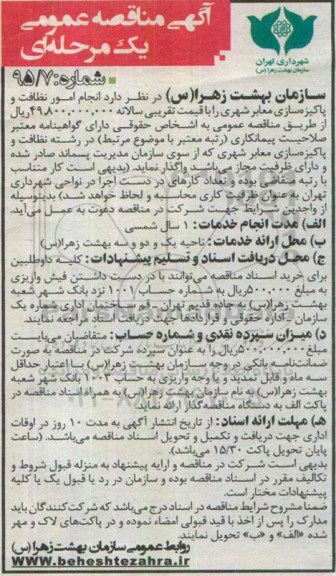 آگهی مناقصه عمومی
یک مرحله‌ای
شهرداری تهران
سازمان بهشت زهرا (س)
شماره: ۹۵/۷
سازمان بهشت زهرا(س) در نظر دارد انجام امور نظافت و
پاکیزه‌سازی معابر شهری را با قیمت تقریبی سالانه ۴۹,۸۰۰,۰۰۰,۰۰۰ ریال
از طریق مناقصه عمومی به اشخاص حقوقی دارای گواهینامه معتبر
صلاحیت پیمانکاری (رتبه معتبر با موضوع مرتبط) در رشته نظافت و
پاکیزه‌سازی معابر شهری که از سوی سازمان مدیریت پسماند صادر شده
و دارای ظرفیت مجاز می‌باشد، واگذار نماید. (بدیهی است کار متناسب
با رتبه متقاضی بوده و تعداد کارهای در دست اجرا در نواحی شهرداری
تهران به عنوان ظرفیت کاری محاسبه و لحاظ خواهد شد) بدینوسیله
از واجدین شرایط جهت شرکت در مناقصه دعوت به عمل می‌آید.
الف) مدت انجام خدمات: ۱ سال شمسی
ب) محل ارائه خدمات: ناحیه یک و دو و سه بهشت زهرا(س)
ج) محل دریافت اسناد و تسلیم پیشنهادات: کلیه داوطلبین
برای خرید اسناد مناقصه می‌توانند با در دست داشتن فیش واریزی
به مبلغ ۵۰۰,۰۰۰ ریال به شماره حساب ۱۰۰۱ نزد بانک شهر شعبه
بهشت زهرا(س) به جاده قدیم تهران - قم ساختمان اداری شماره یک
سازمان - اداره حقوقی و قراردادها جهت دریافت اسناد مراجعه نمایند.
د) میزان سپرده نقدی و شماره حساب: متقاضیان می‌بایست
مبلغ ۵۰۰,۰۰۰,۰۰۰ ریال را به عنوان سپرده شرکت در مناقصه به صورت
ضمانت‌نامه بانکی در وجه سازمان بهشت زهرا(س) با اعتبار حداقل
سه ماه و قابل تمدید و یا وجه واریزی به حساب ۱۰۰۳ بانک شهر شعبه
بهشت زهرا(س) به نام سازمان بهشت زهرا(س) به همراه اسناد مناقصه در
پاکت الف به دستگاه مناقصه گذار ارائه نمایند.
هـ) مهلت ارائه اسناد: از تاریخ انتشار آگهی به مدت ۱۰ روز در اوقات
اداری جهت دریافت و تکمیل و تحویل اسناد مناقصه می‌باشد. (ساعت
پایان تحویل پاکت ۱۵/۳۰ می‌باشد).
بدیهی است شرکت در مناقصه و ارایه پیشنهاد به منزله قبول شروط و
تکالیف مقرر در اسناد مناقصه بوده و سازمان در رد یا قبول یک یا کلیه
پیشنهادات مختار است.
ضمنا مشروح شرایط مناقصه در اسناد درج می‌باشد که شرکت‌کنندگان باید
مدارک را پس از اخذ با قید قبولی امضاء نموده و در پاکت‌های لاک و مهر
شده «الف» و «ب» تحویل نمایند.
روابط عمومی سازمان بهشت زهرا (س)
www.beheshtezahra.ir